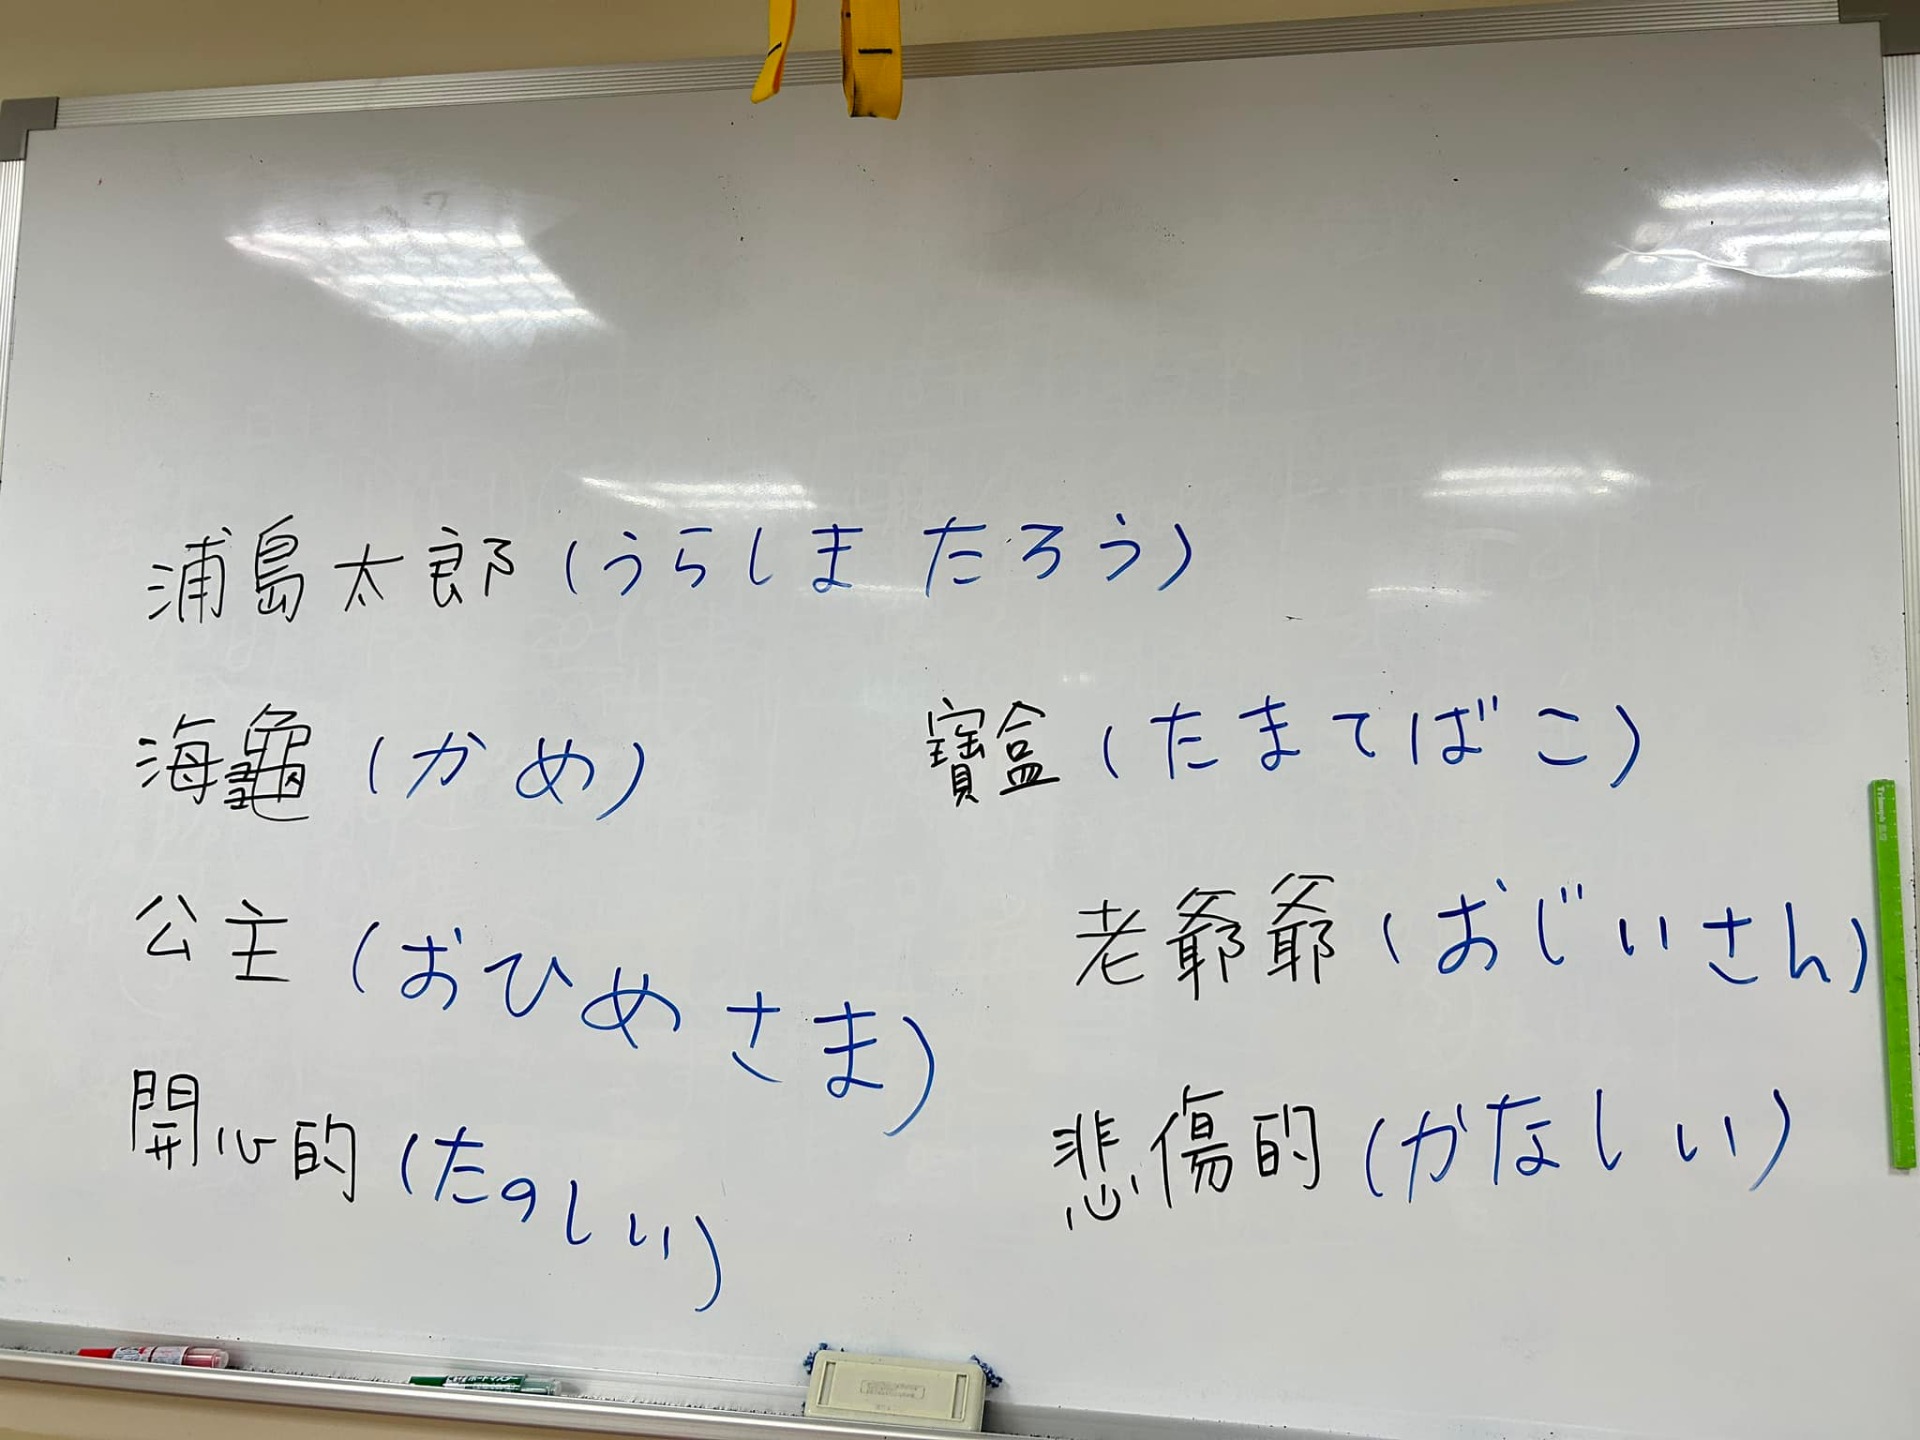 浦島太郎(うらしま たろう)
海龜(かめ)
寶盒(たまてばこ)
公主(おひめさま)
老爺爺(おじいさん)
開心的(たのしい)
悲傷的(かなしい)